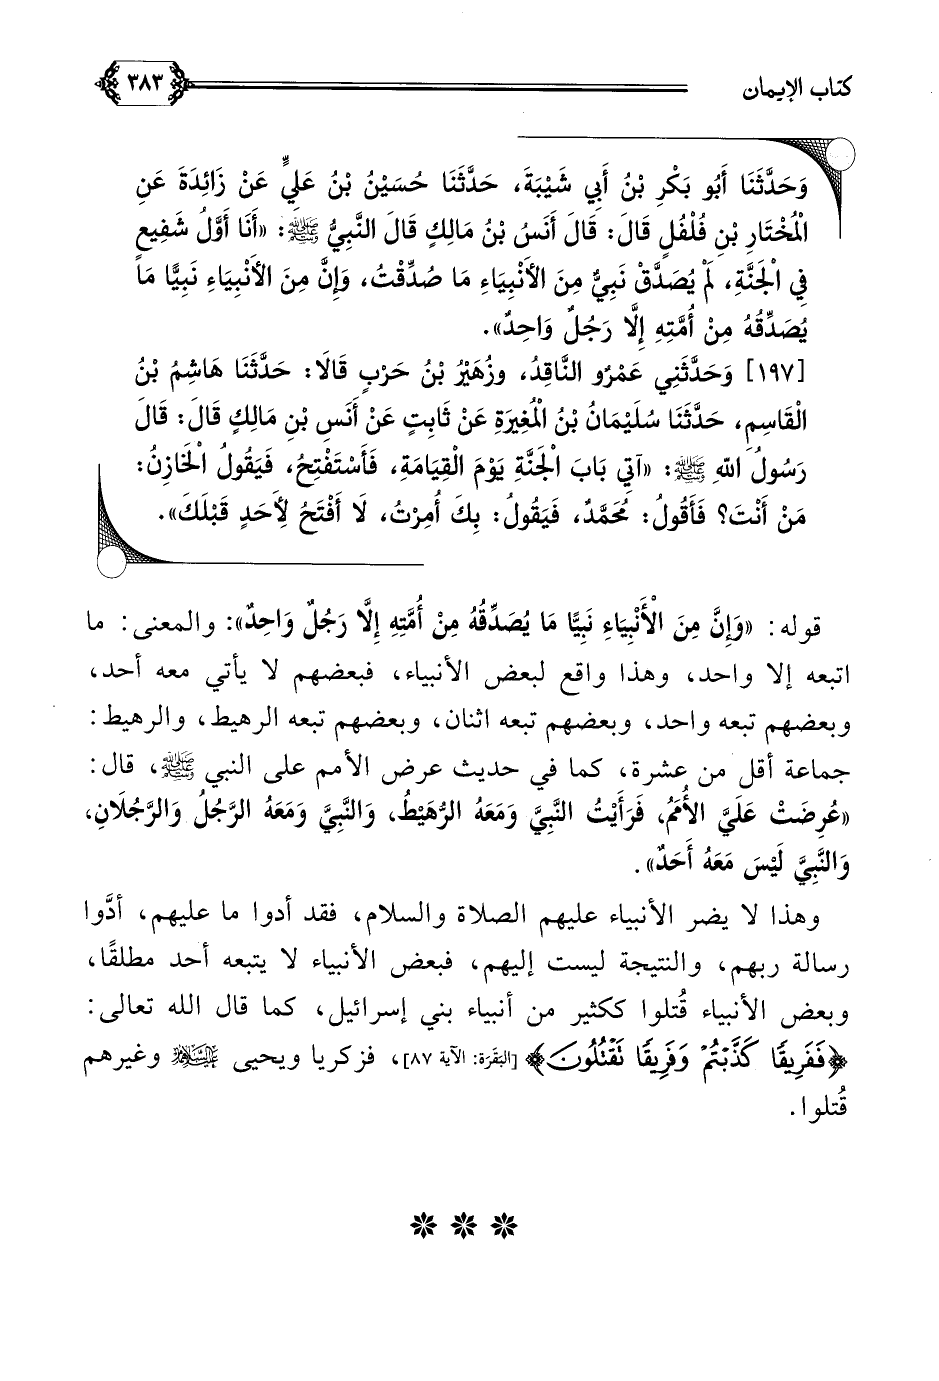 كتاب الإيمان ٣٨٣
وَحَدَّثَنَا أَبُو بَكْرِ بْنُ أَبِي شَيْبَةَ، حَدَّثَنَا حُسَيْنُ بْنُ عَلِيٍّ عَنْ زَائِدَةَ عَنِ
الْمُخْتَارِ بْنِ فُلْفُلٍ قَالَ: قَالَ أَنَسُ بْنُ مَالِكٍ قَالَ النَّبِيُّ ﷺ: «أَنَا أَوَّلُ شَفِيعٍ
فِي الْجَنَّةِ، لَمْ يُصَدَّقْ نَبِيٌّ مِنَ الأَنْبِيَاءِ مَا صُدِّقْتُ، وَإِنَّ مِنَ الأَنْبِيَاءِ نَبِيًّا مَا
يُصَدِّقُهُ مِنْ أُمَّتِهِ إِلَّا رَجُلٌ وَاحِدٌ».
[١٩٧] وَحَدَّثَنِي عَمْرٌو النَّاقِدُ، وَزُهَيْرُ بْنُ حَرْبٍ قَالَا: حَدَّثَنَا هَاشِمُ بْنُ
الْقَاسِمِ، حَدَّثَنَا سُلَيْمَانُ بْنُ الْمُغِيرَةِ عَنْ ثَابِتٍ عَنْ أَنَسِ بْنِ مَالِكٍ قَالَ: قَالَ
رَسُولُ اللَّهِ ﷺ: «آتِي بَابَ الْجَنَّةِ يَوْمَ الْقِيَامَةِ، فَأَسْتَفْتِحُ، فَيَقُولُ الْخَازِنُ:
مَنْ أَنْتَ؟ فَأَقُولُ: مُحَمَّدٌ، فَيَقُولُ: بِكَ أُمِرْتُ، لَا أَفْتَحُ لِأَحَدٍ قَبْلَكَ».
قوله: «وَإِنَّ مِنَ الْأَنْبِيَاءِ نَبِيًّا مَا يُصَدِّقُهُ مِنْ أُمَّتِهِ إِلَّا رَجُلٌ وَاحِدٌ»: والمعنى: ما
اتبعه إلا واحد، وهذا واقع لبعض الأنبياء، فبعضهم لا يأتي معه أحد،
وبعضهم تبعه واحد، وبعضهم تبعه اثنان، وبعضهم تبعه الرهيط، والرهيط:
جماعة أقل من عشرة، كما في حديث عرض الأمم على النبي ﷺ، قال:
«عُرِضَتْ عَلَيَّ الأُمَمُ، فَرَأَيْتُ النَّبِيَّ وَمَعَهُ الرُّهَيْطُ، وَالنَّبِيَّ وَمَعَهُ الرَّجُلُ وَالرَّجُلَانِ،
وَالنَّبِيَّ لَيْسَ مَعَهُ أَحَدٌ».
وهذا لا يضر الأنبياء عليهم الصلاة والسلام، فقد أدوا ما عليهم، أدَّوا
رسالة ربهم، والنتيجة ليست إليهم، فبعض الأنبياء لا يتبعه أحد مطلقًا،
وبعض الأنبياء قُتلوا ككثير من أنبياء بني إسرائيل، كما قال الله تعالى:
﴿فَفَرِيقًا كَذَّبْتُمْ وَفَرِيقًا تَقْتُلُونَ﴾ [البَقَرَة: الآية ٨٧]، فزكريا ويحيى عليهما السلام وغيرهم
قُتلوا.